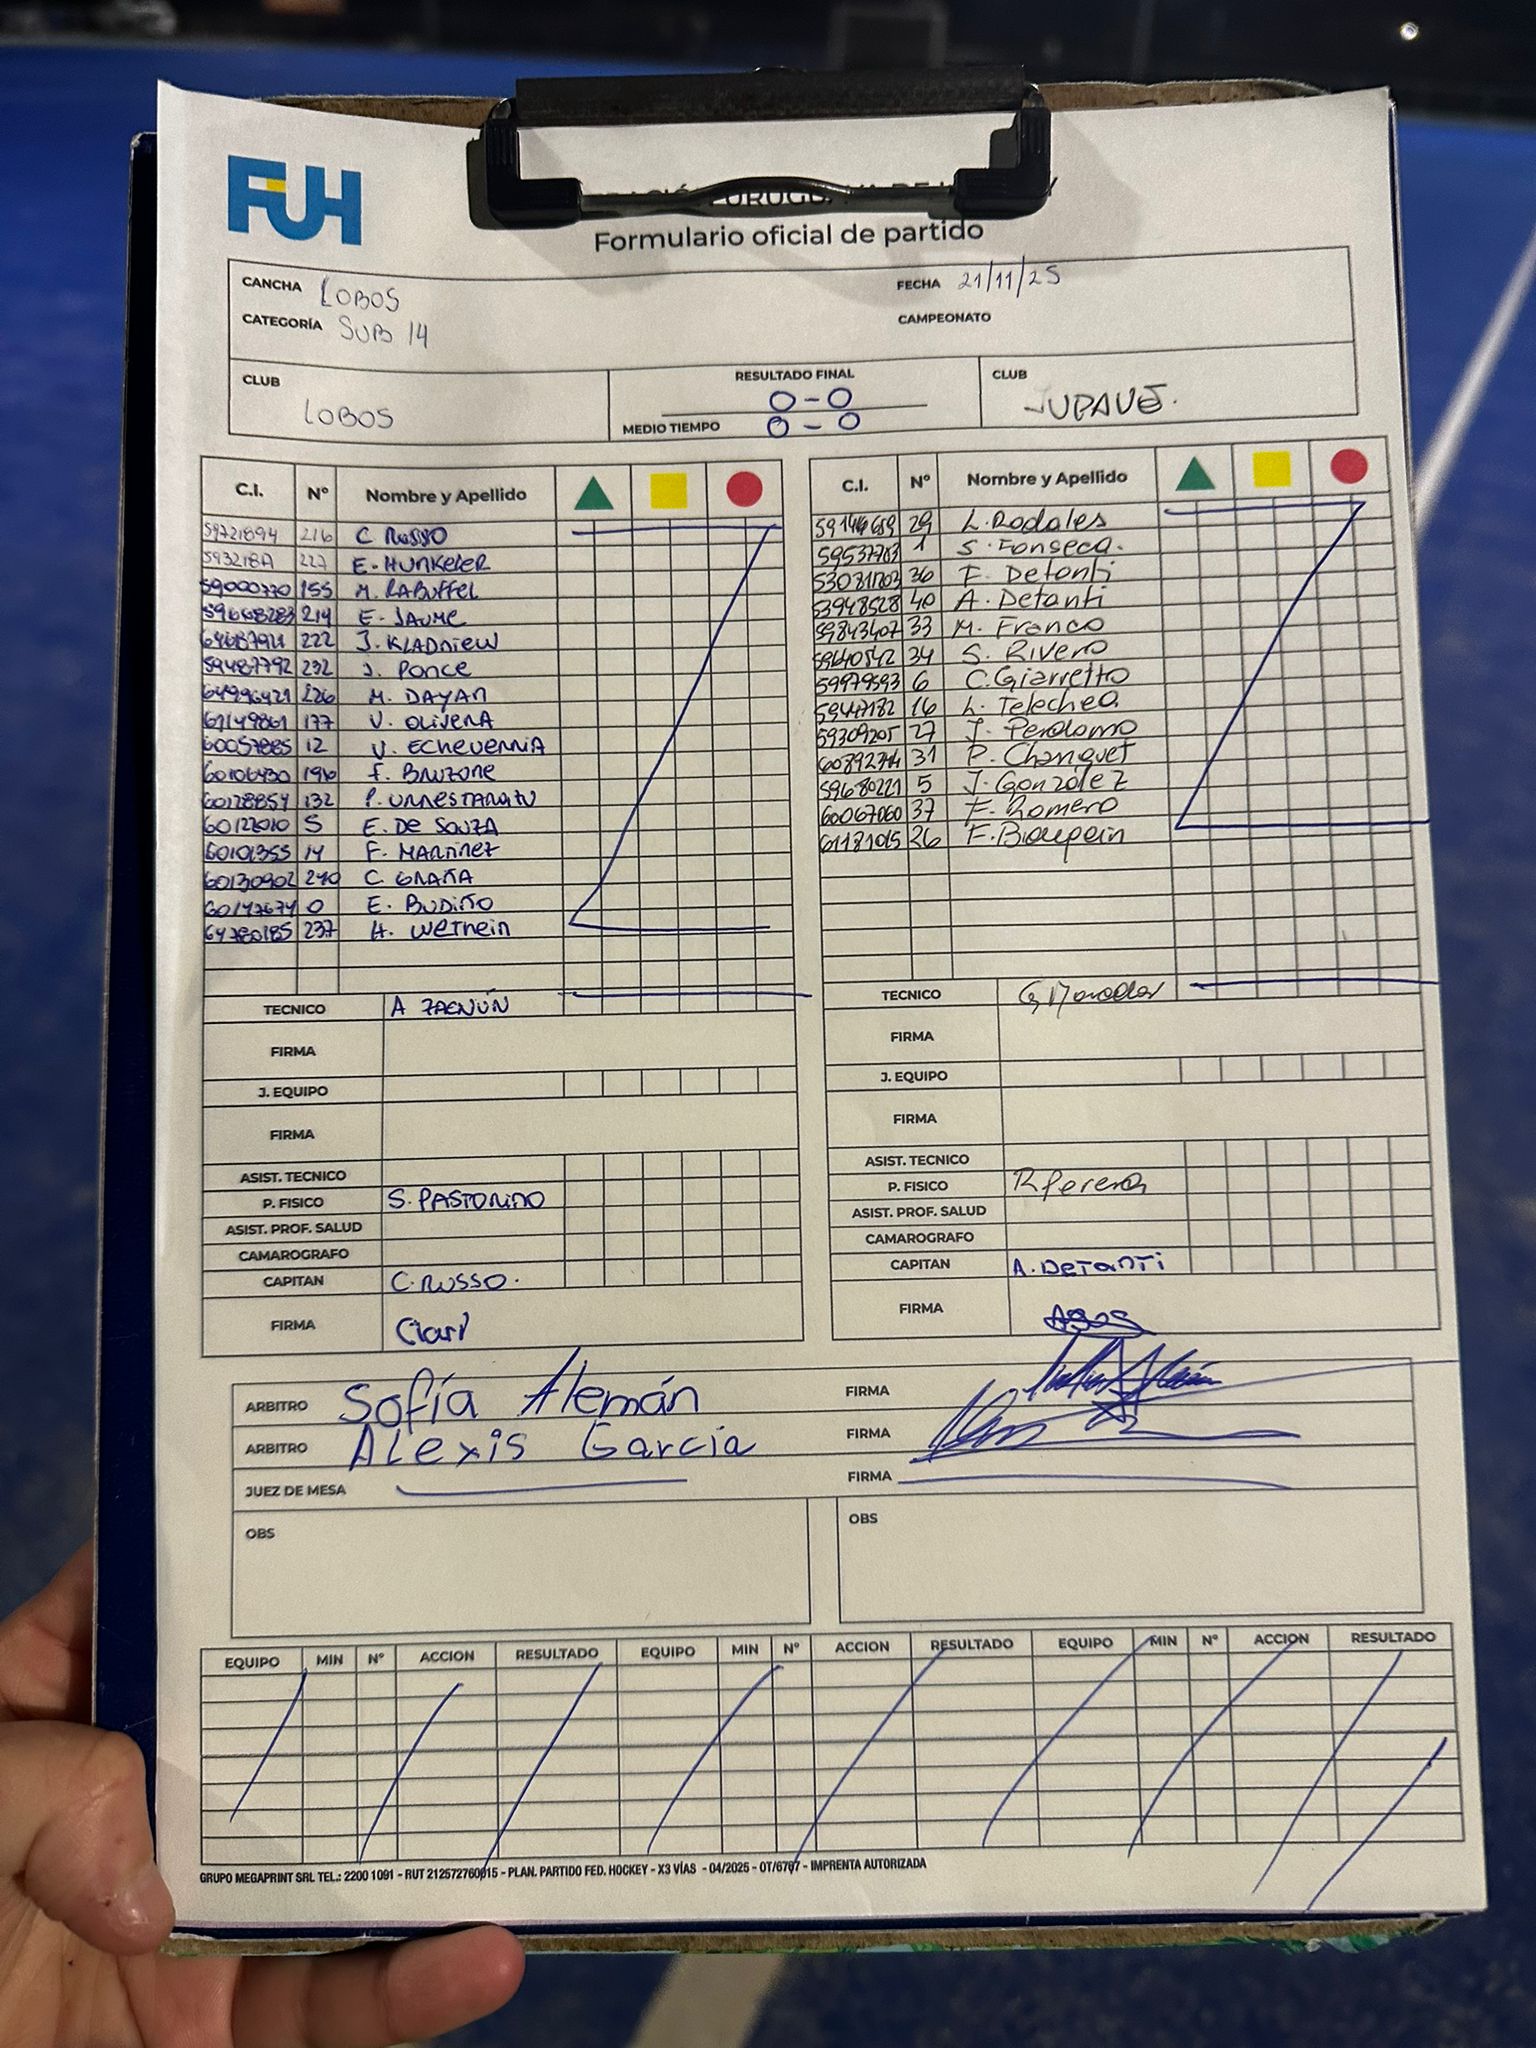 FUH
Formulario oficial de partido
CANCHA LOBOS FECHA 21/11/25
CATEGORÍA SUB 14 CAMPEONATO
CLUB LOBOS RESULTADO FINAL 0-0 CLUB
MEDIO TIEMPO 0-0
C.I. Nº Nombre y Apellido C.I. Nº Nombre y Apellido
59721894 216 C RUSSO 29 L. Rodales
E. HUNKELER 59537783 1 S. Fonseca.
59000770 155 M. RABUFFEL 36 F. Detanti
214 E. JAUME 53948528 40 A. Detanti
222 J. KLADNIEW 59843407 33 M. Franco
59487792 232 J. PONCE 34 S. Rivero
226 M. DAYAN 59979593 6 C. Giarretto
177 V. OLIVERA 59447182 16 L. Telechea
60057885 12 V. ECHEVERRIA 59309205 27 J. Perdomo
196 F. BRUZONE 31 P. Changuet
60128854 132 59680221 5 J. González
5 E. DE SOUZA 60067060 37 F. Romero
60101355 14 F. MARTINEZ 26
60130902 C. GRAÑA
0 E. BUDIÑO
64780185 237
TECNICO TECNICO
FIRMA FIRMA
J. EQUIPO J. EQUIPO
FIRMA FIRMA
ASIST. TECNICO ASIST. TECNICO
P. FISICO S. PASTORINO P. FISICO
ASIST. PROF. SALUD ASIST. PROF. SALUD
CAMAROGRAFO CAMAROGRAFO
CAPITAN C. RUSSO. CAPITAN A. DETANTI
FIRMA FIRMA
ARBITRO Sofía Alemán FIRMA
ARBITRO Alexis García FIRMA
JUEZ DE MESA FIRMA
OBS OBS
EQUIPO MIN Nº ACCION RESULTADO EQUIPO MIN Nº ACCION RESULTADO EQUIPO MIN Nº ACCION RESULTADO
GRUPO MEGAPRINT SRL TEL.: 2200 1091 - RUT 212572760015 - PLAN. PARTIDO FED. HOCKEY - X3 VÍAS - 04/2025 - OT/6797 - IMPRENTA AUTORIZADA